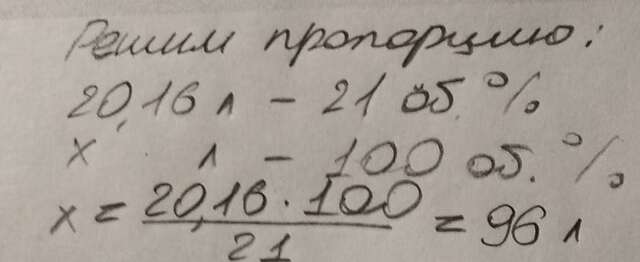 Решим пропорцию:
20,16 л – 21 об. %
х л – 100 об. %
х = 20,16 · 100 / 21 = 96 л